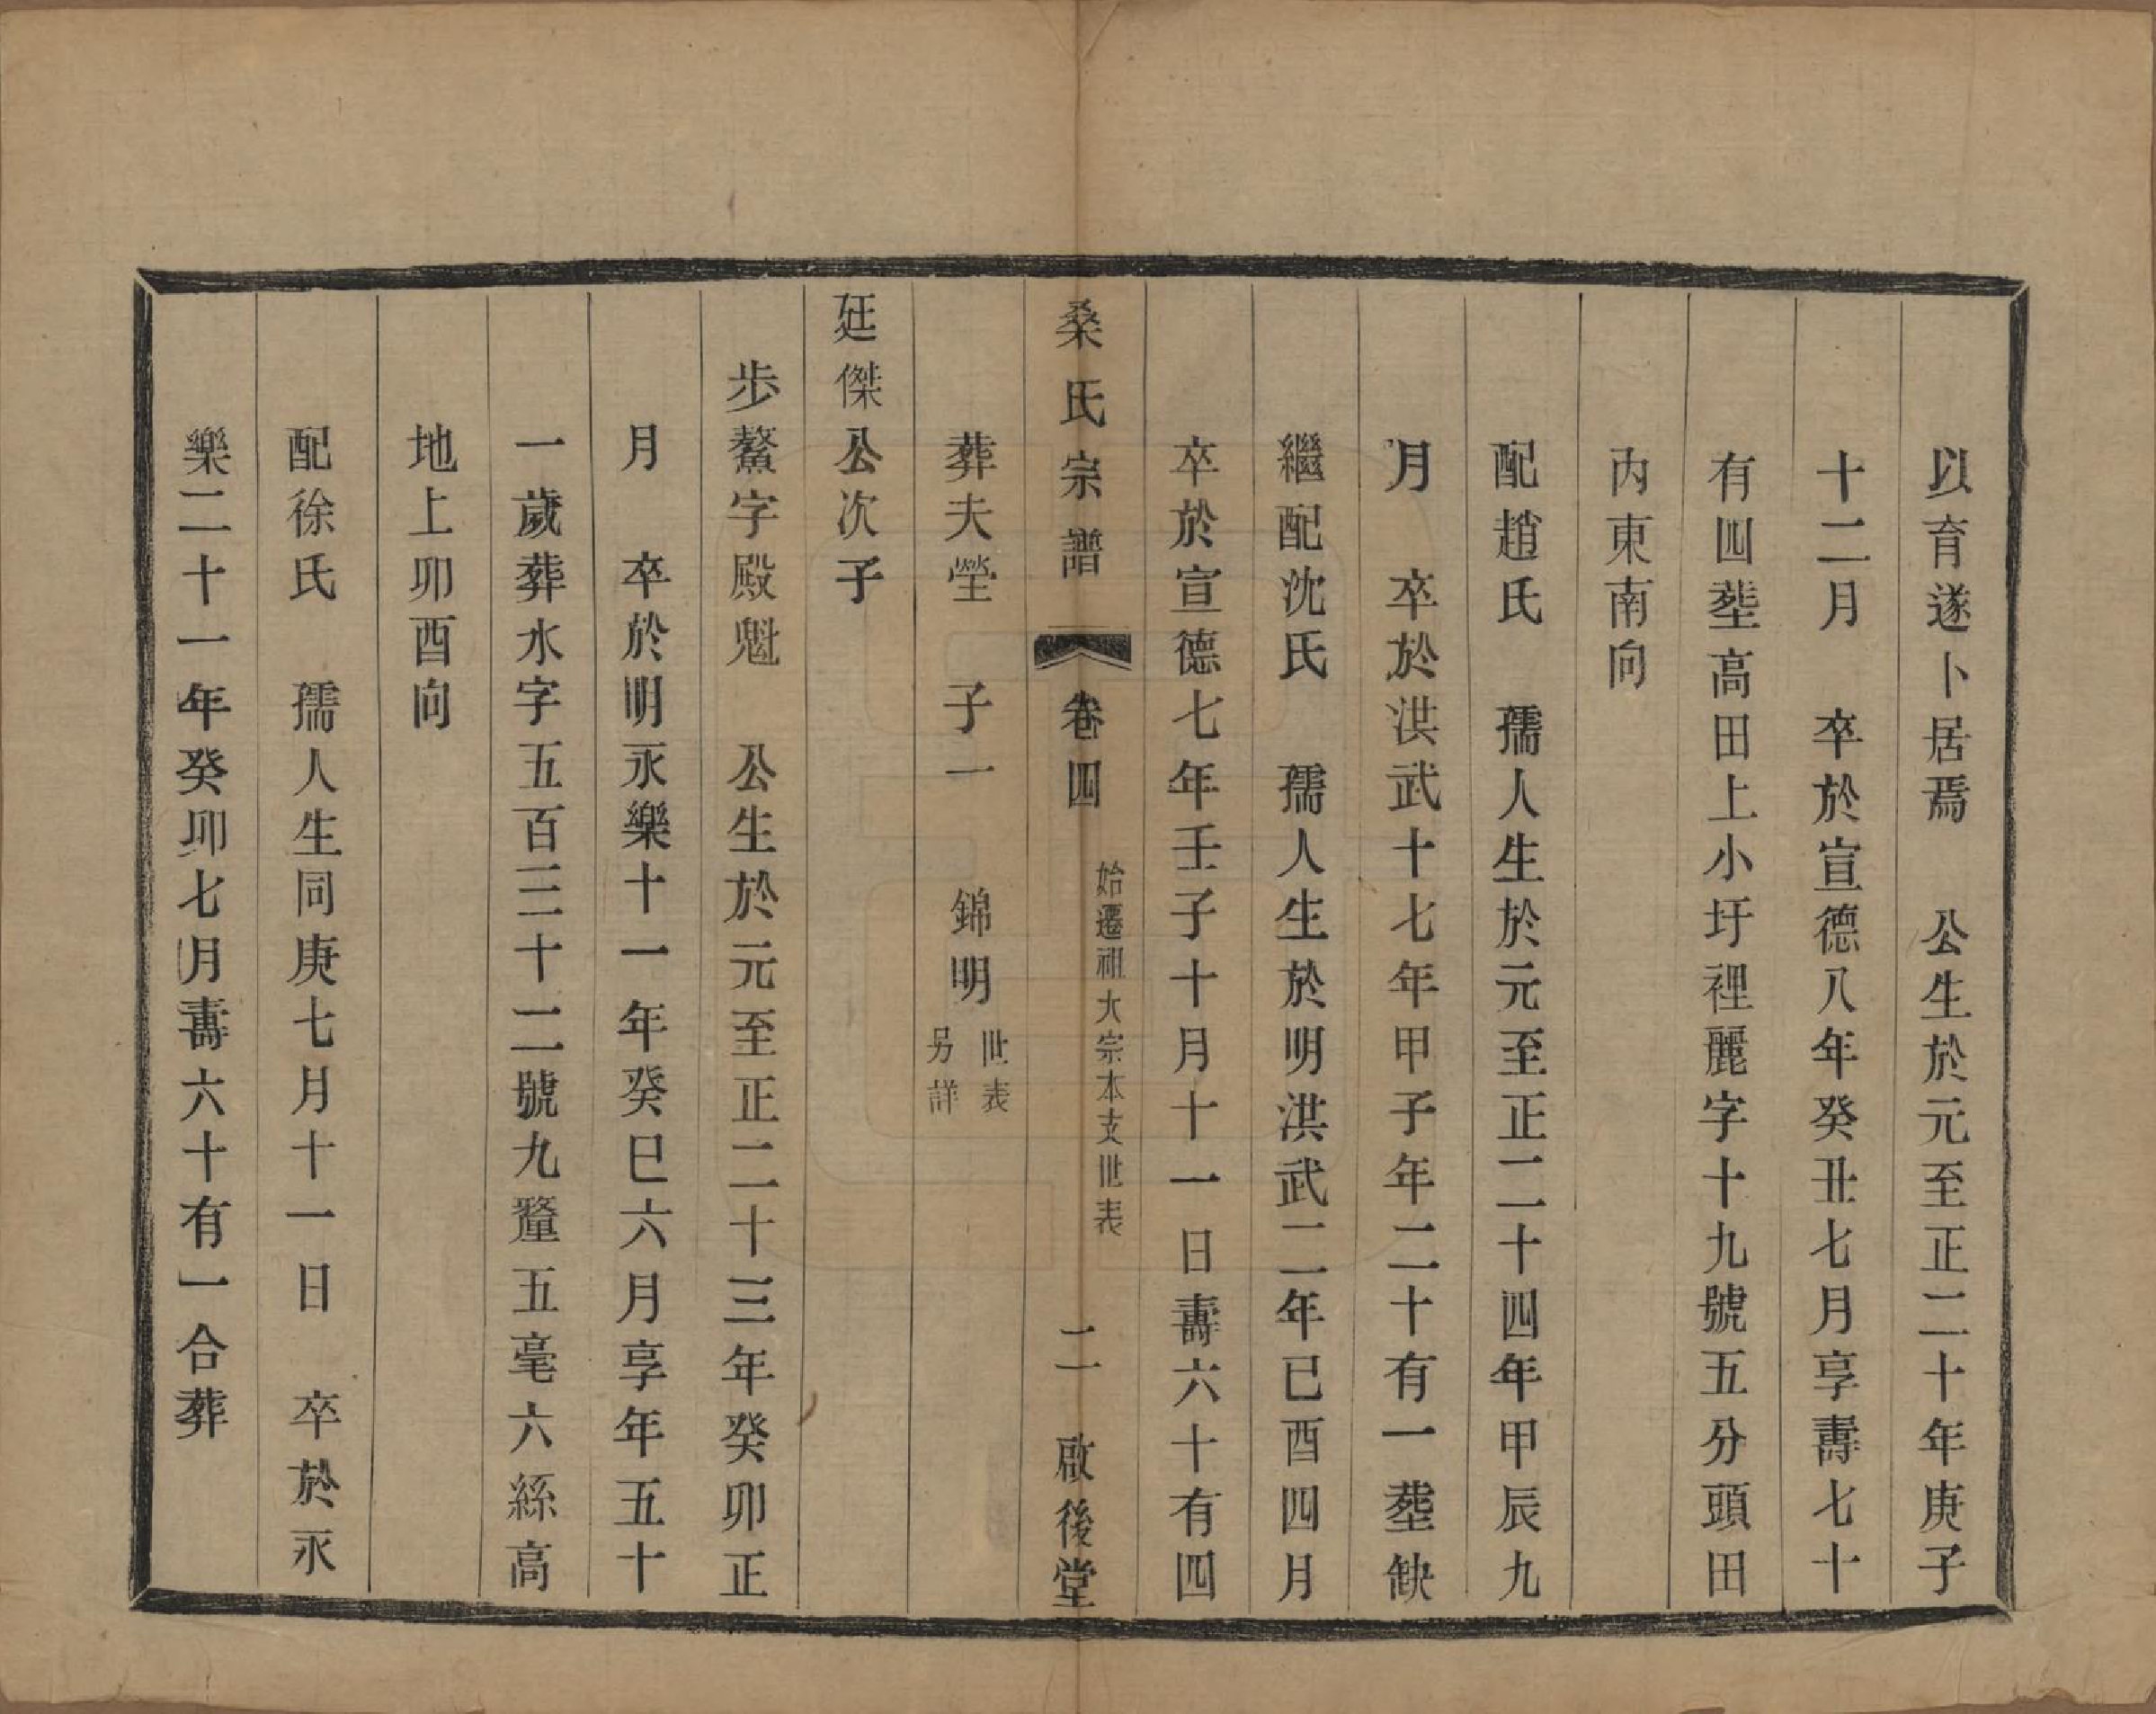 以育遂卜居焉　公生於元至正二十年庚子
十二月　卒於宣德八年癸丑七月享壽七十
有四塟高田上小圩裡麗字十九號五分頭田
內東南向
配趙氏　孺人生於元至正二十四年甲辰九
月　卒於洪武十七年甲子年二十有一塟缺
繼配沈氏　孺人生於明洪武二年已酉四月
卒於宣德七年壬子十月十一日壽六十有四
桑氏宗譜　卷四　始遷祖大宗本支世表　二　啟後堂
葬夫塋　子一　錦明　世表另詳
廷傑公次子
步鰲字殿魁　公生於元至正二十三年癸卯正
月　卒於明永樂十一年癸巳六月享年五十
一歲葬水字五百三十二號九釐五毫六絲高
地上卯酉向
配徐氏　孺人生同庚七月十一日　卒於永
樂二十一年癸卯七月壽六十有一合葬